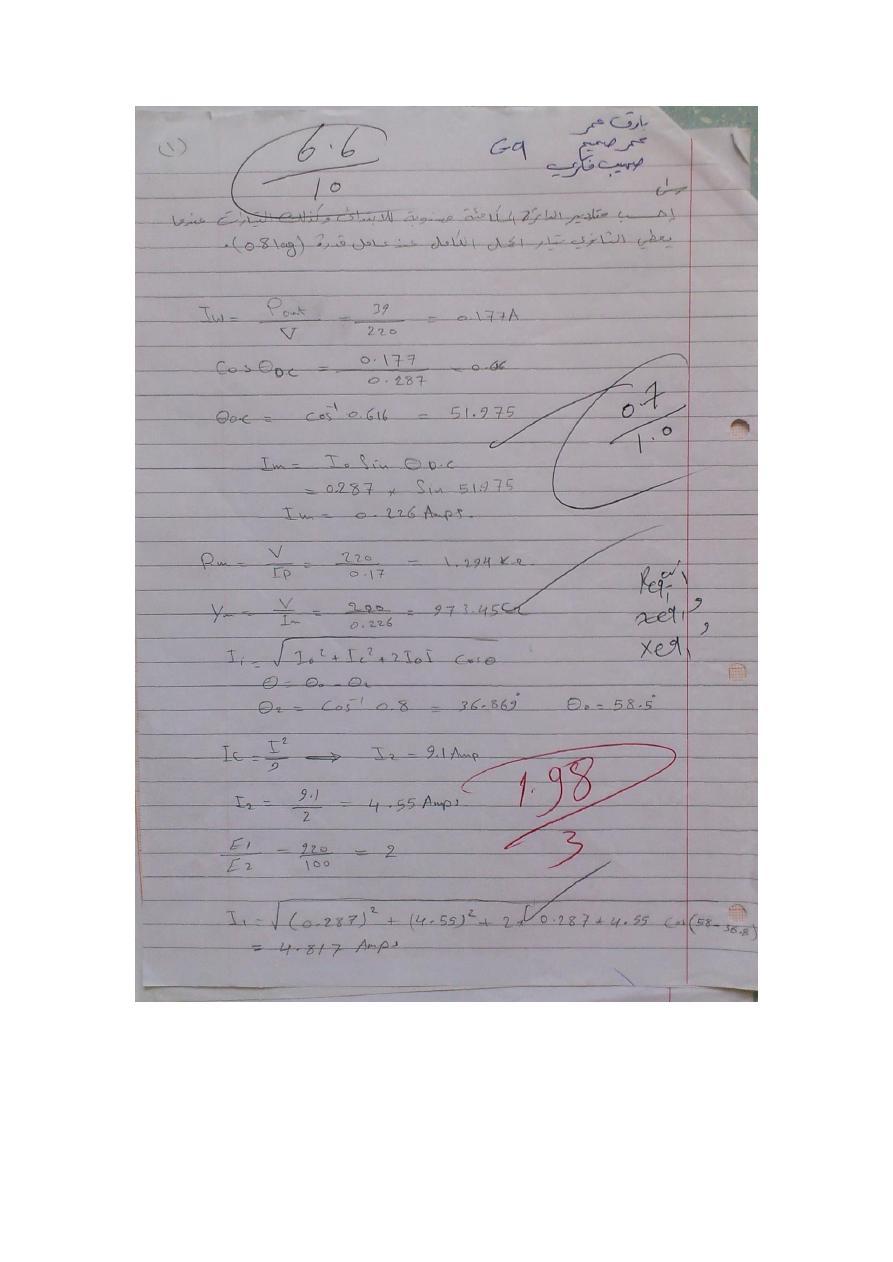 بارق عمر
عمر صميم
صهيب فكري
G9
(١)
6.6
10
س١
إحسب مقادير الدائرة المكافئة منسوبة للابتدائي وكذلك التيارات عندما
يعطي الثانوي تيار الحمل الكامل عند عامل قدرة (0.8 lag).
Iw = Pout / V = 39 / 220 = 0.177A
Cos θo.c = 0.177 / 0.287 = 0.66
θo.c = cos⁻¹ 0.616 = 51.975
0.7
1.0
Im = Io Sin θo.c
= 0.287 × Sin 51.975
Im = 0.226 Amps.
Rm = V / Ip = 220 / 0.17 = 1.294 KΩ
Ym = V / Im = 220 / 0.226 = 973.45Ω
Req1,
xeq1,
Xeq1
I1 = √Io² + Ic² + 2IoI Cosθ
θ = θo - θ2
θ2 = Cos⁻¹ 0.8 = 36.869° θo = 58.5°
Ic = I2 / a ⟹ I2 = 9.1 Amp
1.98
3
I2 = 9.1 / 2 = 4.55 Amps.
E1 / E2 = 220 / 100 = 2
I1 = √(0.287)² + (4.55)² + 2 * 0.287 * 4.55 Cos(58-36.8)
= 4.817 Amps